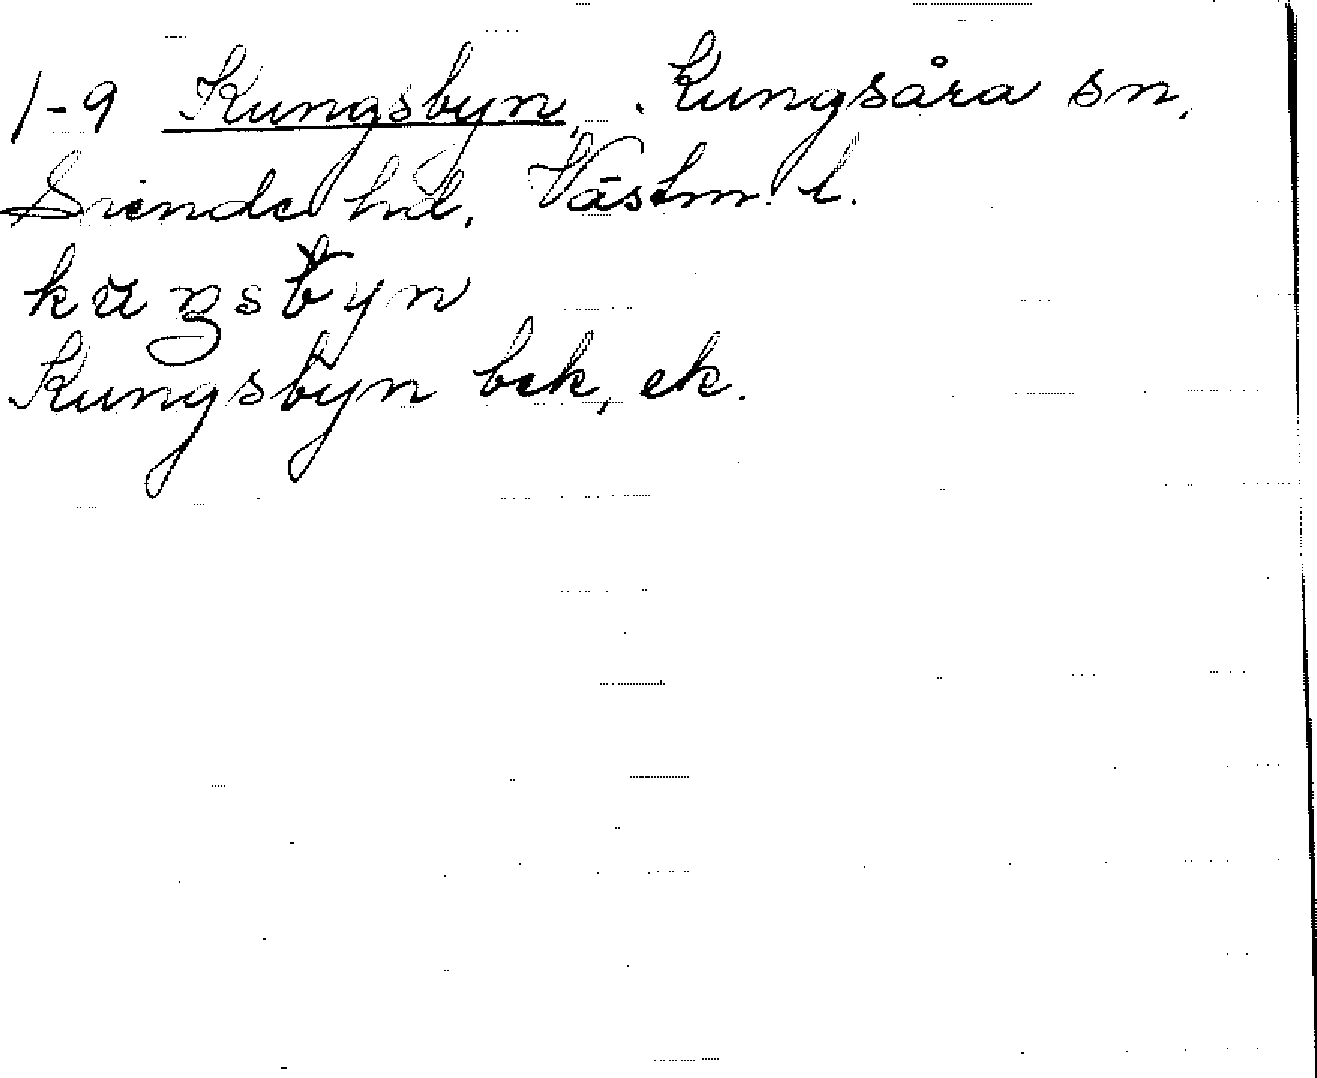 1-9 Kungsbyn, Kungsåra sn,
Siende hd, Västm. l.
Kungsbyn bek, ek.